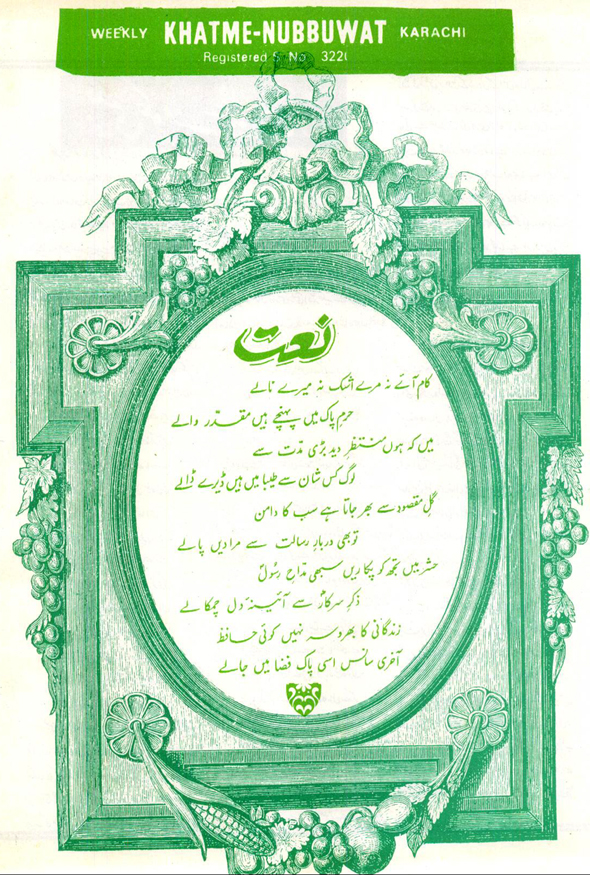 WEEKLY KHATME-NUBBUWAT KARACHI
Registered S. No. 322
نعت
کام آئے نہ مرے اشک نہ میرے نالے
حرمِ پاک میں پہنچے ہیں مقدّر والے
میں کہ ہوں منتظرِ دید بڑی مدّت سے
لوگ کس شان سے طیبا میں ہیں ڈیرے ڈالے
گلِ مقصود سے بھر جاتا ہے سب کا دامن
تو بھی دربارِ رسالت سے مرادیں پالے
حشر میں تجھ کو پکاریں سبھی مدّاحِ رسُولؐ
ذکرِ سرکارؐ سے آئینۂ دل چمکا لے
زندگانی کا بھروسہ نہیں کوئی حافظؔ
آخری سانس اسی پاک فضا میں جا لے